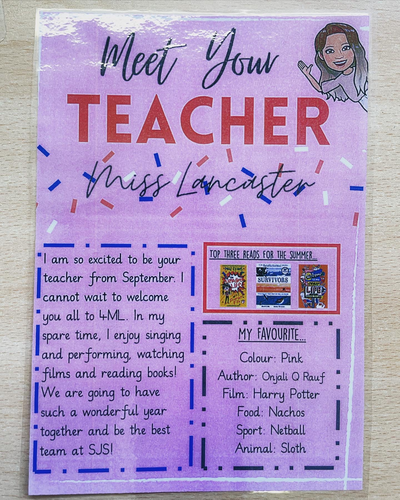 Meet Your
TEACHER
Miss Lancaster
I am so excited to be your
teacher from September. I
cannot wait to welcome
you all to 4ML. In my
spare time, I enjoy singing
and performing, watching
films and reading books!
We are going to have
such a wonderful year
together and be the best
team at SJS!
TOP THREE READS FOR THE SUMMER...
SURVIVORS
MY FAVOURITE...
Colour: Pink
Author: Onjali Q Rauf
Film: Harry Potter
Food: Nachos
Sport: Netball
Animal: Sloth